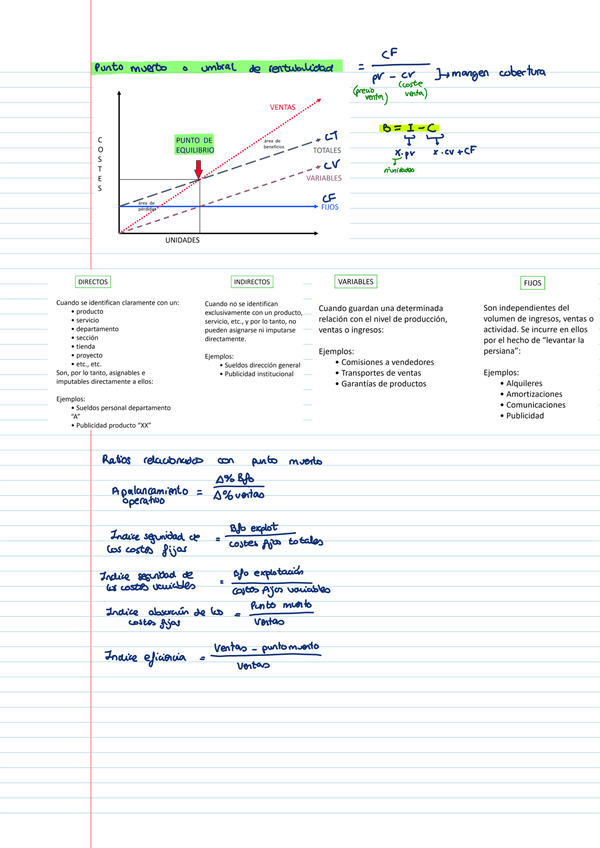 Punto muerto o umbral de rentabilidad = CF / pv - cv ]→ margen cobertura
(precio venta) (coste venta)
B = I - C
x.pv x.cv + CF
nº unidades
COSTES
VENTAS
PUNTO DE
EQUILIBRIO
área de
beneficios
CT
TOTALES
CV
VARIABLES
área de
pérdidas
CF
FIJOS
UNIDADES
DIRECTOS
Cuando se identifican claramente con un:
• producto
• servicio
• departamento
• sección
• tienda
• proyecto
• etc., etc.
Son, por lo tanto, asignables e
imputables directamente a ellos:
Ejemplos:
• Sueldos personal departamento
"A"
• Publicidad producto "XX"
INDIRECTOS
Cuando no se identifican
exclusivamente con un producto,
servicio, etc., y por lo tanto, no
pueden asignarse ni imputarse
directamente.
Ejemplos:
• Sueldos dirección general
• Publicidad institucional
VARIABLES
Cuando guardan una determinada
relación con el nivel de producción,
ventas o ingresos:
Ejemplos:
• Comisiones a vendedores
• Transportes de ventas
• Garantías de productos
FIJOS
Son independientes del
volumen de ingresos, ventas o
actividad. Se incurre en ellos
por el hecho de "levantar la
persiana":
Ejemplos:
• Alquileres
• Amortizaciones
• Comunicaciones
• Publicidad
Ratios relacionados con punto muerto
Apalancamiento operativo = Δ% Bfo / Δ% ventas
Indice seguridad de los costes fijos = Bfo explot / costes fijos totales
Indice seguridad de los costes variables = Bfo explotación / costos fijos variables
Indice absorción de los costes fijos = Punto muerto / Ventas
Indice eficiencia = Ventas - punto muerto / Ventas